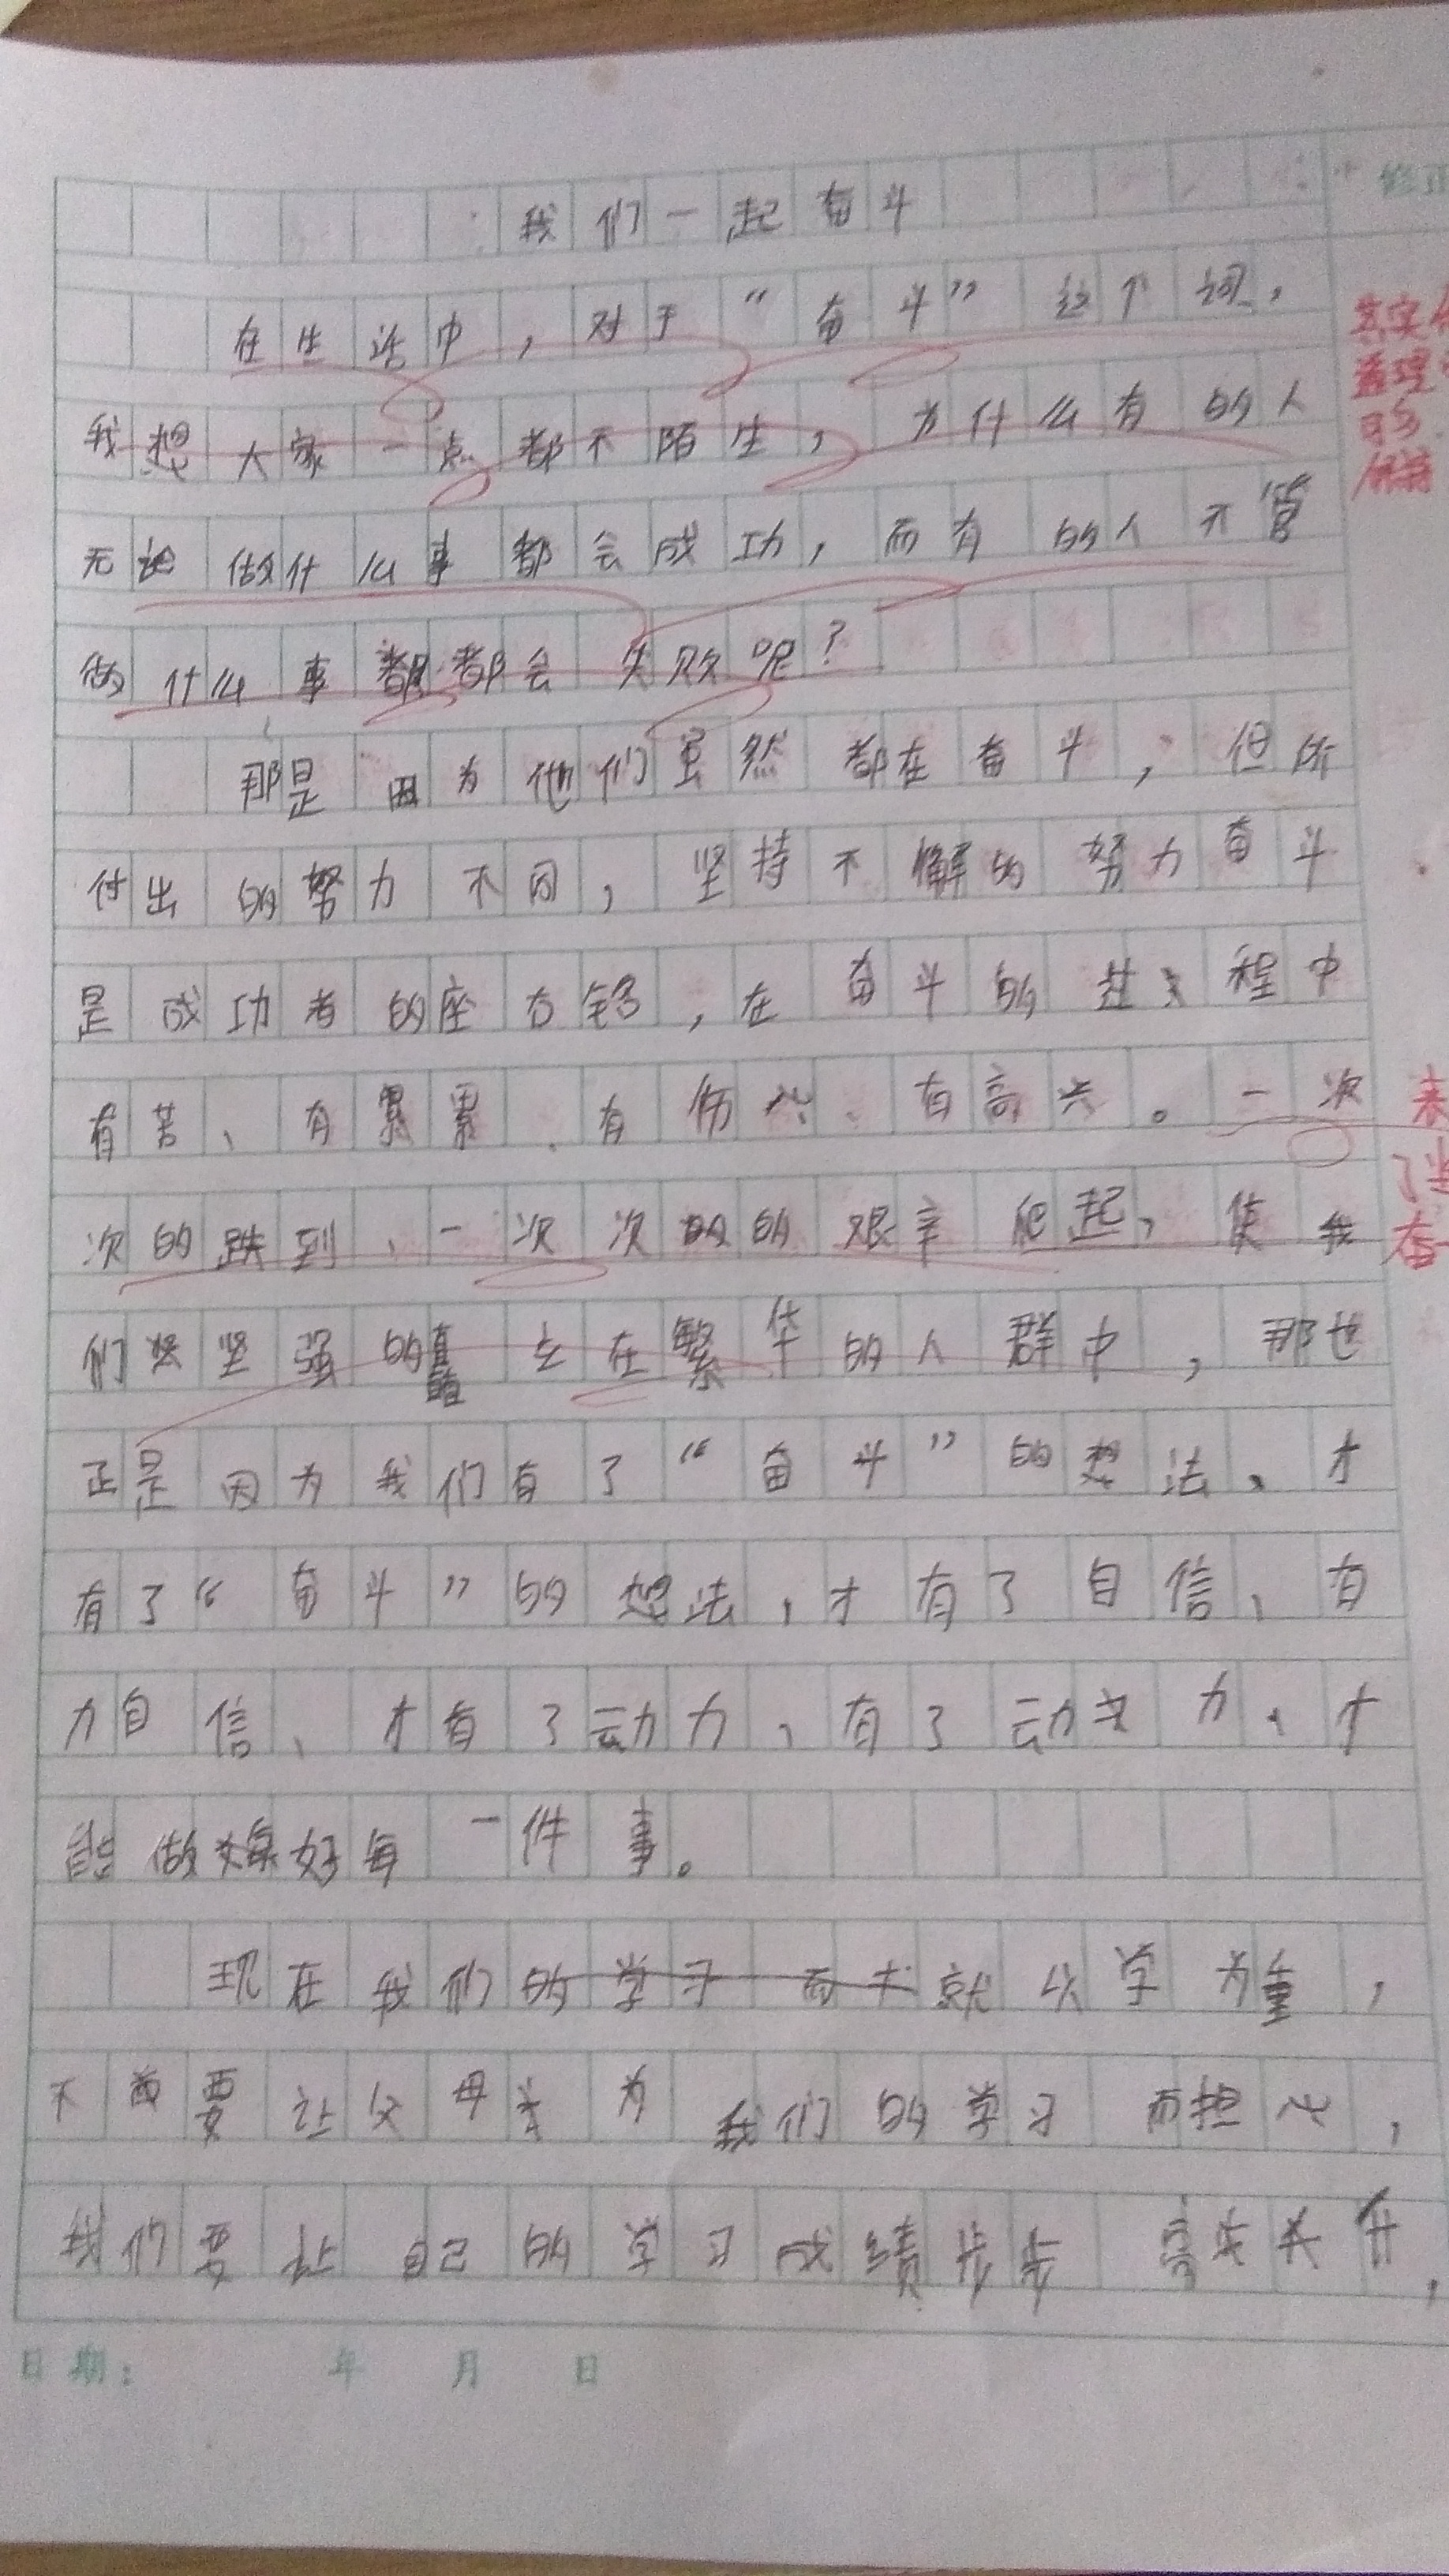 我们一起奋斗
在生活中，对于“奋斗”这个词，
我想大家一点都不陌生，为什么有的人
无论做什么事都会成功，而有的人不管
做什么事都都会失败呢？
那是因为他们虽然都在奋斗，但所
付出的努力不同，坚持不懈的努力奋斗
是成功者的座右铭，在奋斗的过程中
有苦、有累、有伤心、有高兴。一次
次的跌到、一次次的的艰辛爬起，使我
们坚强的直立在繁华的人群中，那也
正是因为我们有了“奋斗”的想法、才
有了“奋斗”的想法，才有了自信、有
力自信、才有了动力，有了动力、才
能做好每一件事。
现在我们的学习而才就以学为重，
不要让父母为我们的学习而担心，
我们要让自己的学习成绩步步高升，
日期： 年 月 日
修正